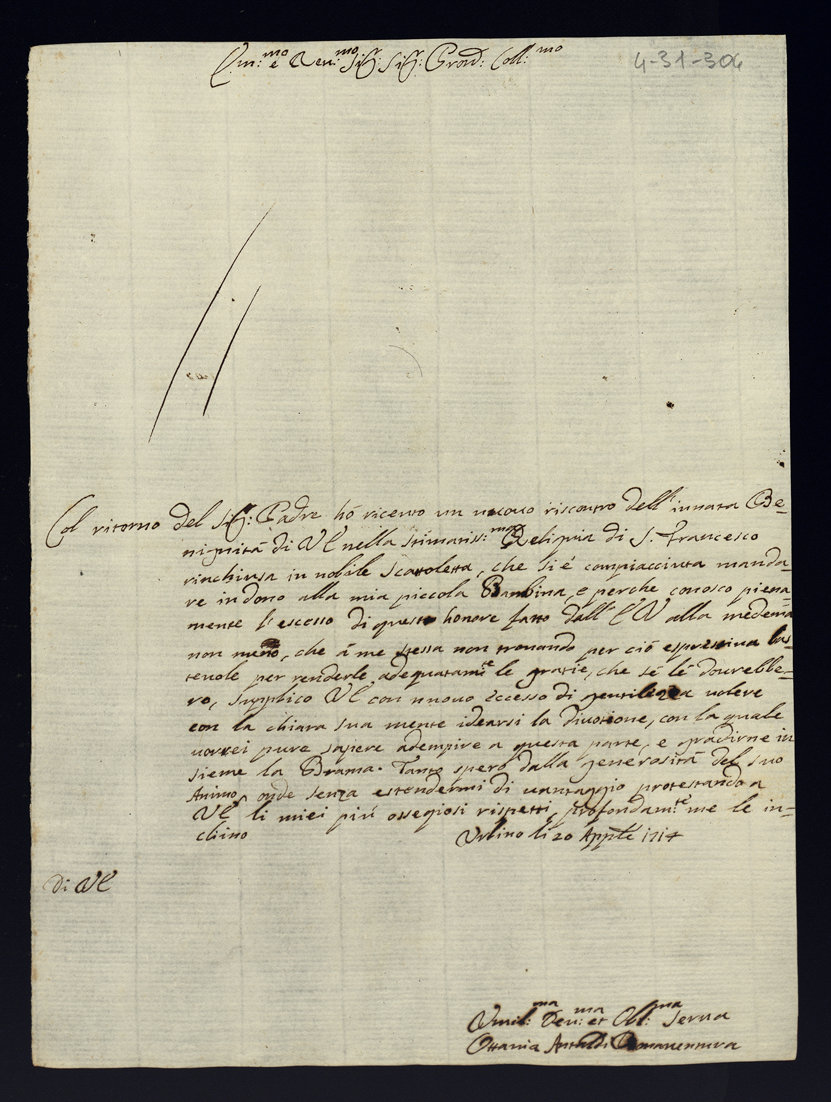 Em:mo e Rev:mo Sig: Sig: Prōn: Coll:mo
4-31-304
Col ritorno del Sig: Padre hó ricevuto un nuovo riscontro dell'innata Be-
nignitá di VE nella stimatiss:ma Reliquia di S. Francesco
rinchiusa in nobile Scattoletta, che si é compiacciuta manda-
re in dono alla mia piccola Bambina, e perche conosco piena-
mente l'eccesso di questo honore fatto dall'EV alla medema
non meno, che á me stessa non trovando per ció espressiva bas-
tevole per renderle adequatam:te le gratie, che se lé dovrebbe-
ro, supplico VE con nuovo eccesso di gentilezza volere
con la chiara sua mente idearsi la divotione, con la quale
vorrei pure sapere adempire a questa parte, e gradirne in
sieme la Brama. Tanto spero dalla generositá del suo
Animo, onde senza estendermi di vantaggio protestando a
VE li miei piú ossequiosi rispetti, profondam:te me le in-
chino
Urbino li 20 Apple 1714
Di VE
Umil:ma Dev:ma et Obl:ma Serva
Ottavia Antaldi Bonaventura